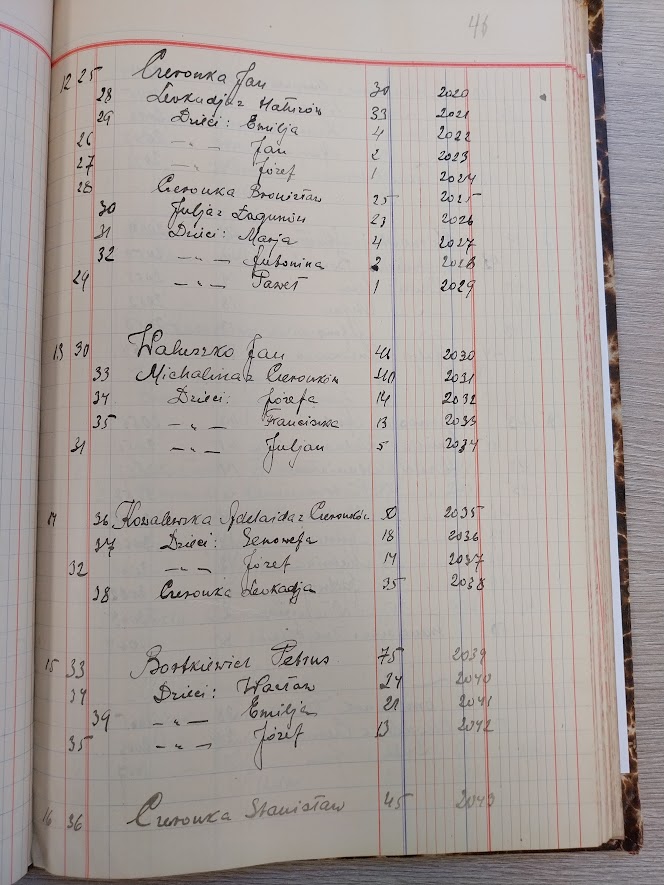 46
12 25 Czeronka Jan 30 2020
28 Leokadja z Matuzów 33 2021
29 Dzieci: Emilja 4 2022
26 —„— Jan 2 2023
27 —„— Józef 1 2024
28 Czeronka Bronisław 25 2025
30 Julja z Łagunów 23 2026
31 Dzieci: Marja 4 2027
32 —„— Antonina 2 2028
29 —„— Paweł 1 2029
13 30 Waluszko Jan 44 2030
33 Michalina z Czeronków 40 2031
34 Dzieci: Józefa 14 2032
35 —„— Franciszka 13 2033
31 —„— Juljan 5 2034
14 36 Kowalewska Adelaida z Czeronków 50 2035
37 Dzieci: Genowefa 18 2036
32 —„— Józef 14 2037
38 Czeronka Leokadja 35 2038
15 33 Bortkiewicz Petrus 75 2039
34 Dzieci: Wacław 24 2040
39 —„— Emilja 21 2041
35 —„— Józef 13 2042
16 36 Czeronka Stanisław 45 2043